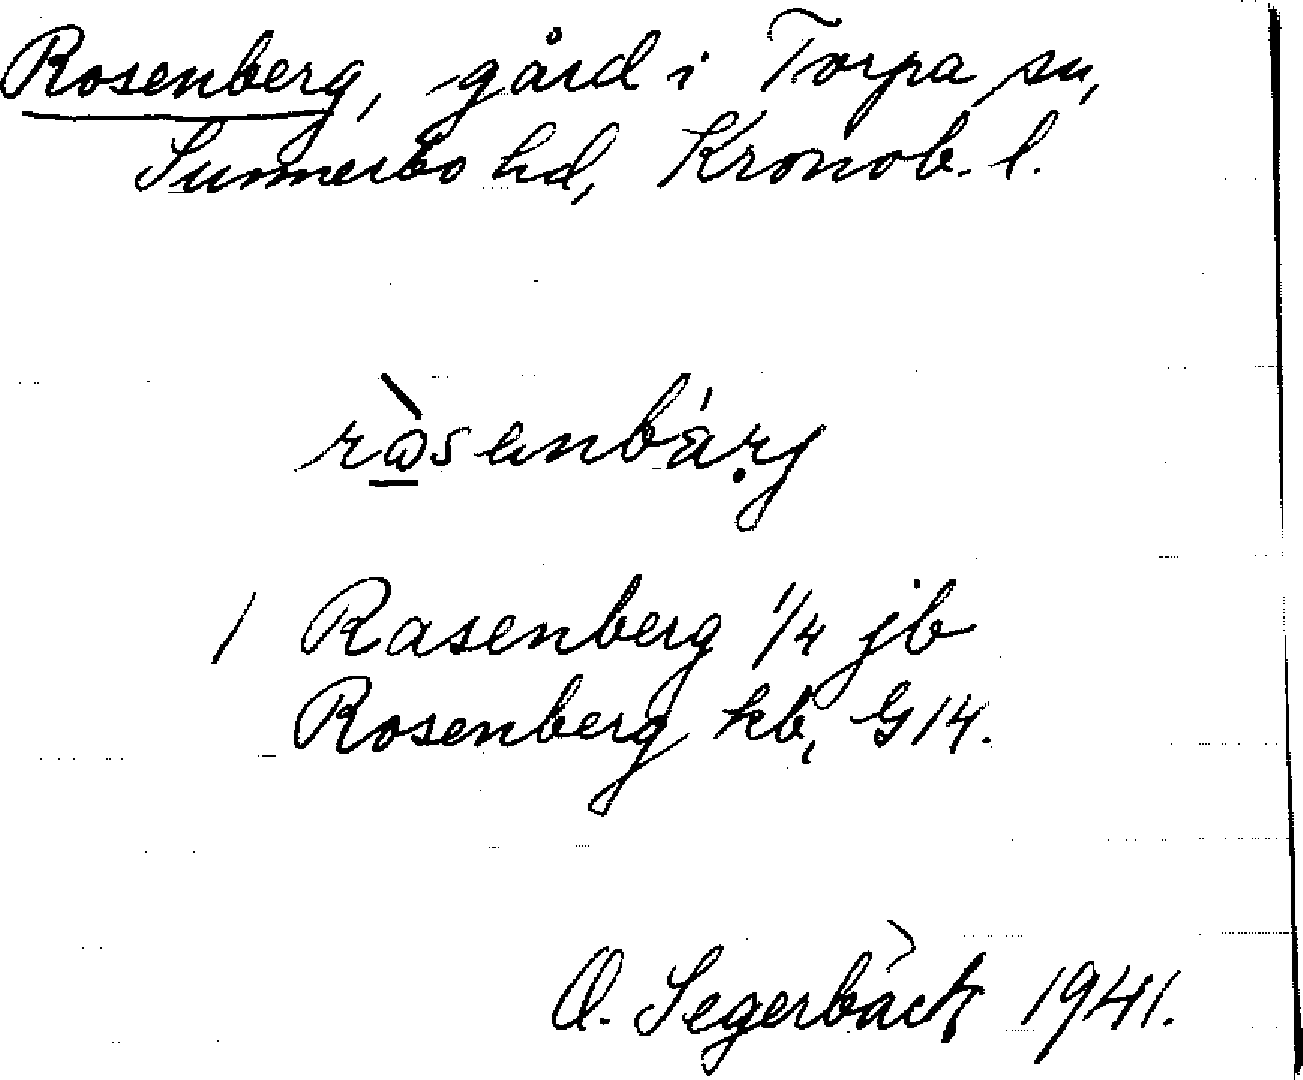 Rosenberg, gård i Torpa sn,
Sunnerbo hd, Kronob. l.
ròsenbárj
1 Rasenberg 1/4 jb
Rosenberg kb, G14.
O. Segerbäck 1941.